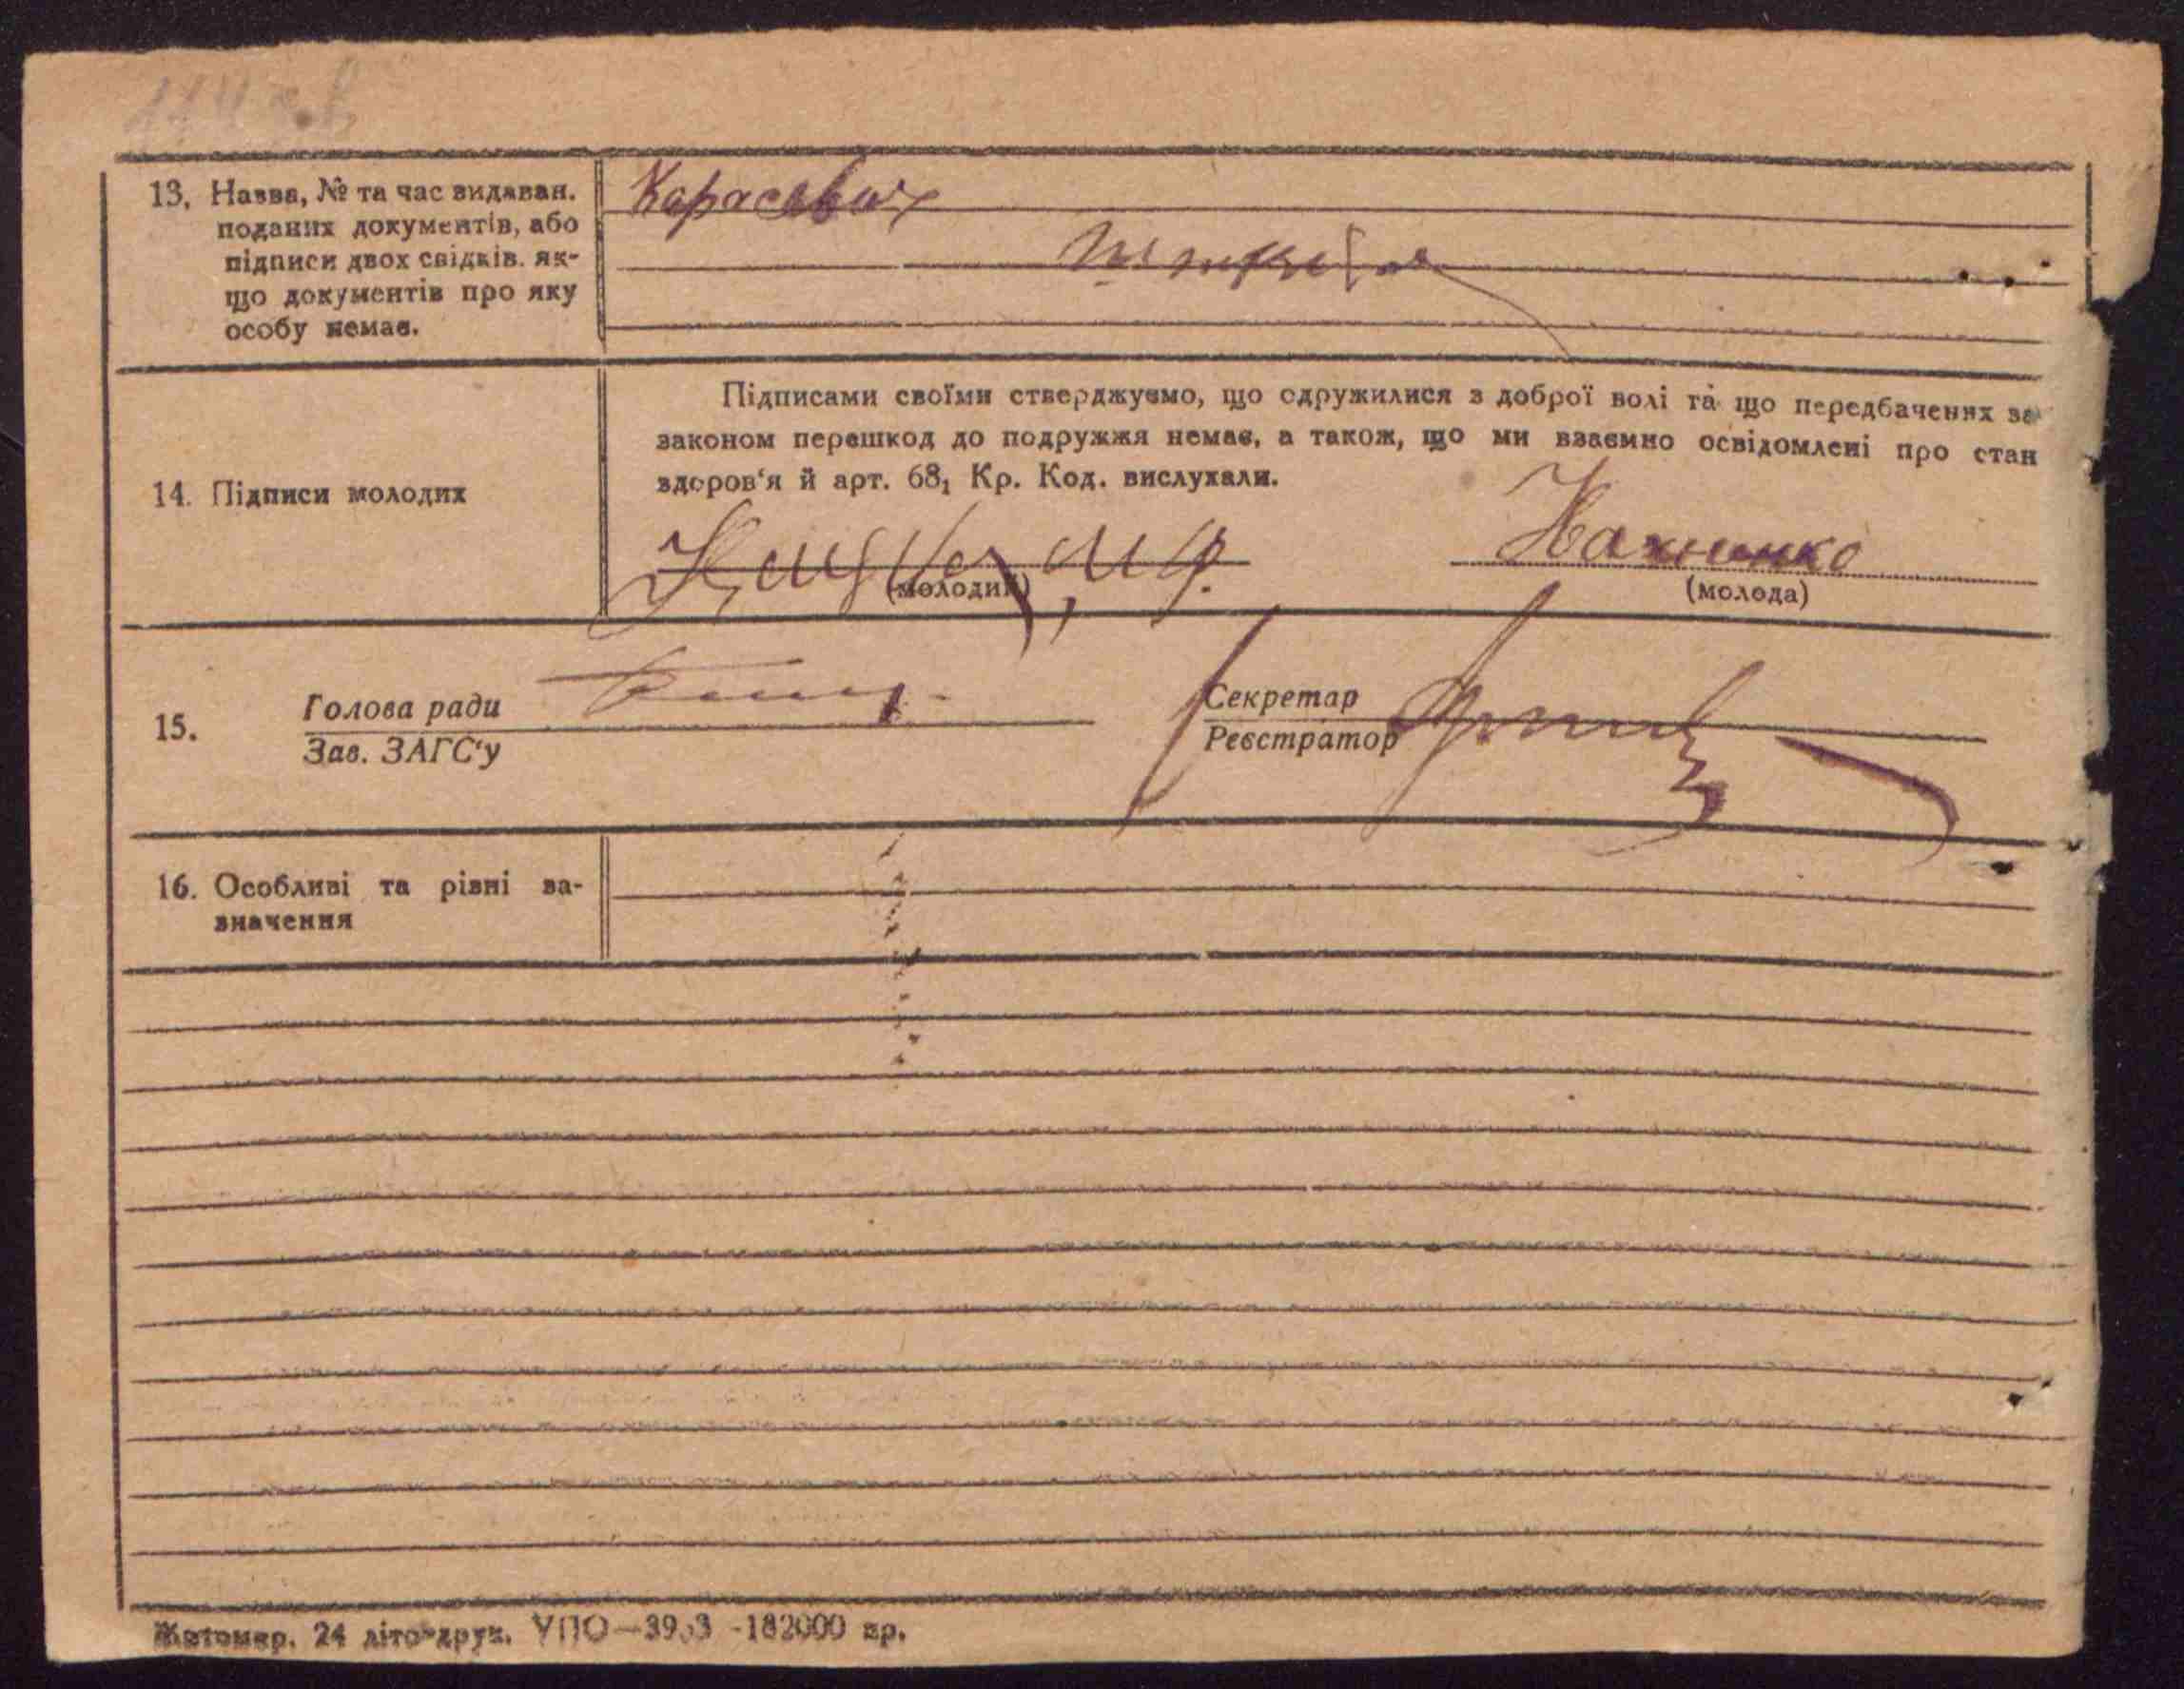 13, Назва, № та час видаван.
поданих документів, або
підписи двох свідків. як-
що документів про яку
особу немає.
Карасевич
14. Підписи молодих
Підписами своїми стверджуємо, що одружилися з доброї волі та що передбачених за
законом перешкод до подружжя немає, а також, що ми взаємно освідомлені про стан
здоров'я й арт. 68₁ Кр. Код. вислухали.
(молодий)
(молода)
15.
Голова ради
Зав. ЗАГС'у
Секретар
Реєстратор
16. Особливі та рівні за-
значення
Житомир. 24 літо-друк. УПО— -182000 пр.